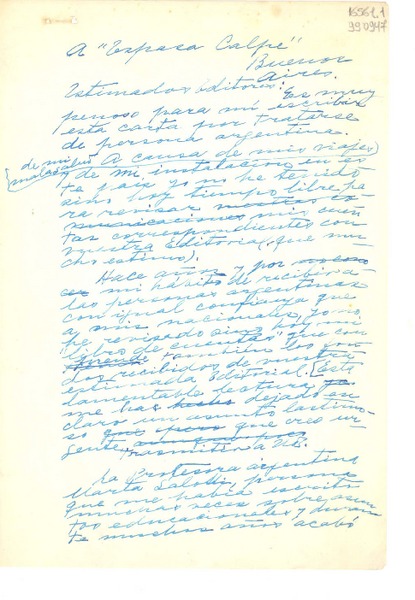 16561.1
990947
A "Espasa Calpe"
Buenos
Aires.
Estimados Editores: Es muy
penoso para mí escribir
esta carta por tratarse
de persona argentina.
de mi
mala
A causa de mis viajes
y de mi instalación en es
te país yo no he tenido
sino hoy tiempo libre pa
ra revisar
mis cuen
tas correspondientes con
vuestra Editorial (que mu
cho estimo).
Hace años y por
mi hábito de recibir a
las personas argentinas
con igual confianza que
a mis nacionales, yo no
he revisado sino hoy mi
"libro de cuentas" que con
también los
dos recibidos de vuestra
estimada Editorial. Esta
lamentable lectura
me ha dejado en
claro un asunto lastimo
so que creo ur
gente trasmitir a Uds.
La Profesora argentina
Marta Salotti, persona
que me había escrito
muchas veces sobre asun
tos educacionales y duran
te muchos años acabó